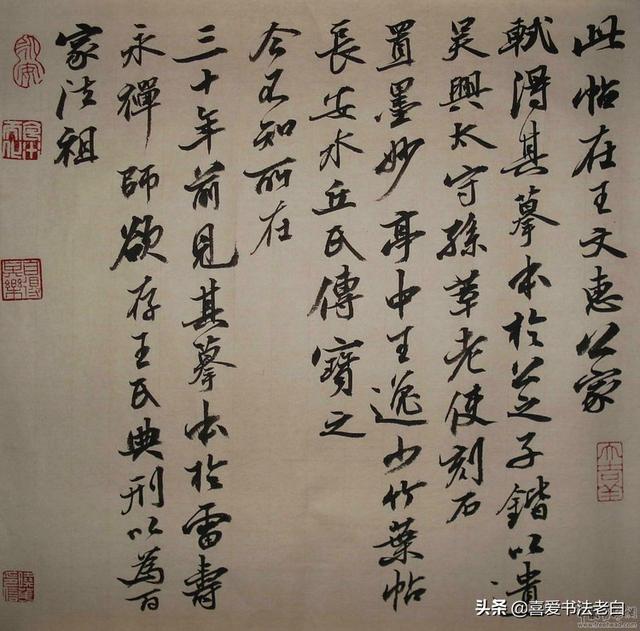 此帖在王文惠公家
軾得其摹本於公之子鍇以遺
吳興太守孫莘老使刻石
置墨妙亭中王逸少竹葉帖
長安水丘氏傳寶之
今不知所在
三十年前見其摹本於雷壽
永禪師欲存王氏典刑以為百
家法祖
头条 @喜爱书法老白